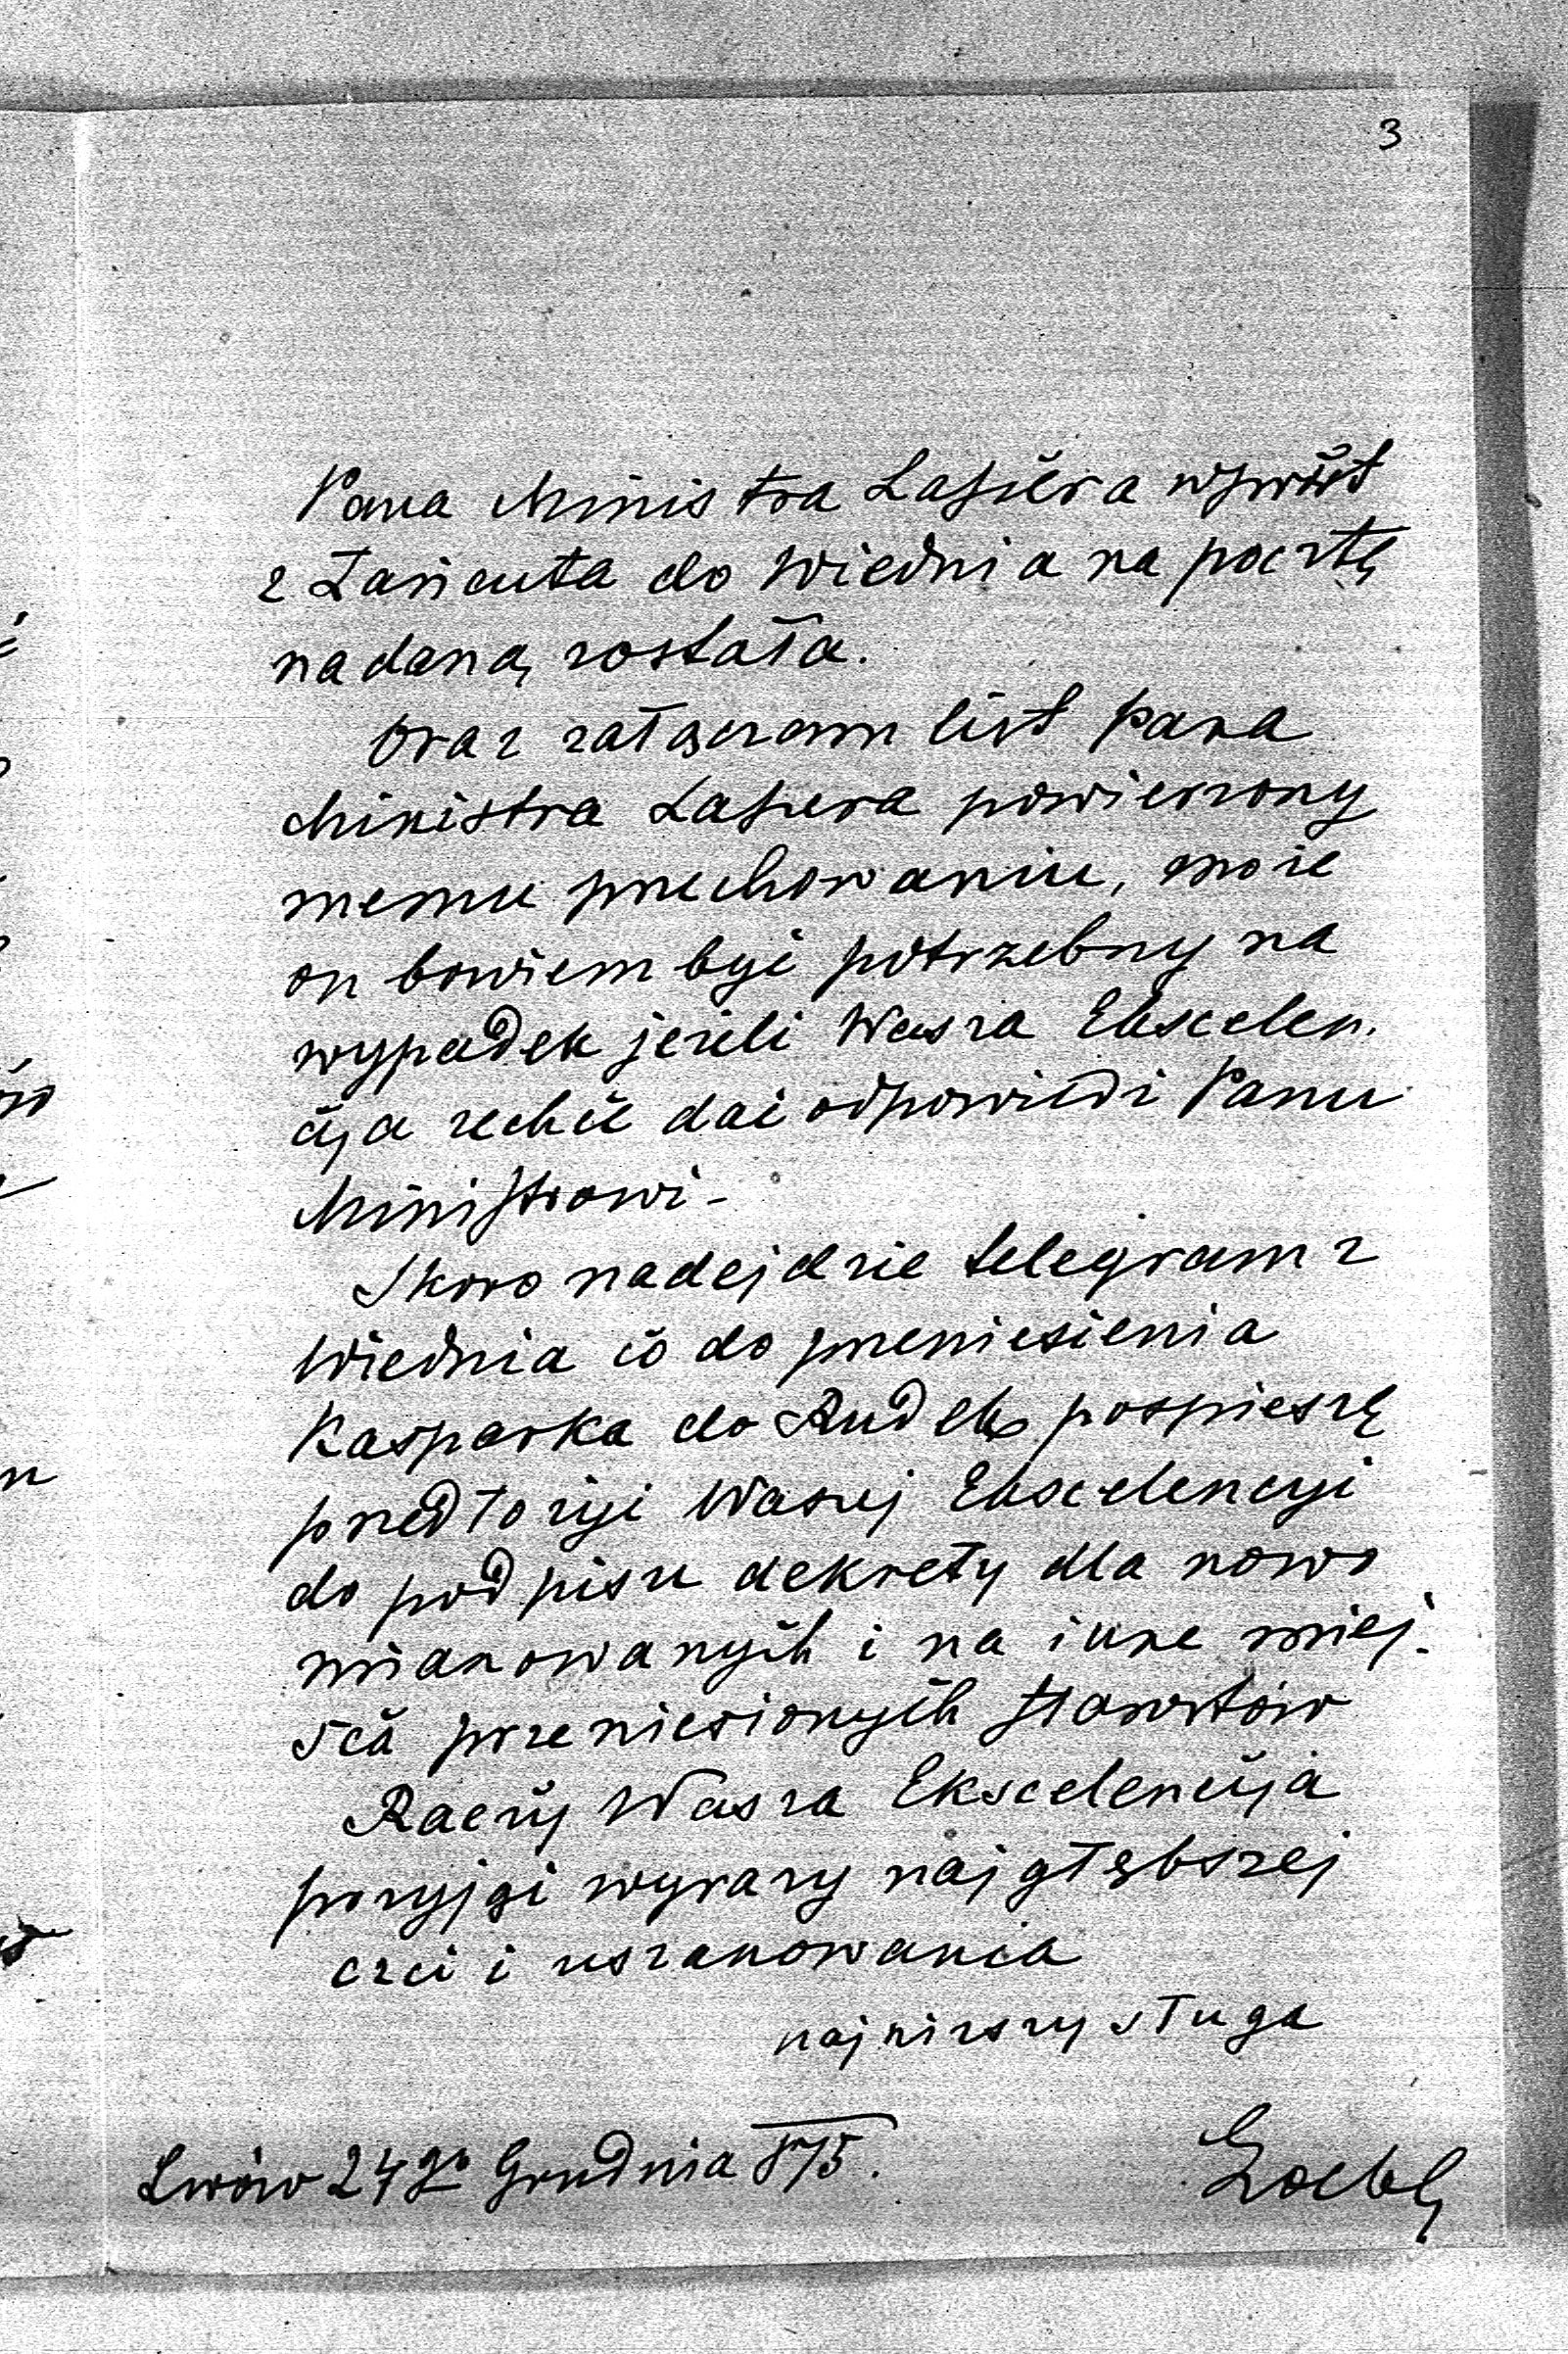 3
Pana Ministra Lassera wprost
z Łańcuta do Wiednia na pocztę
nadaną została.
Oraz załączam list Pana
Ministra Lassera powierzony
memu przechowaniu, może
on bowiem być potrzebny na
wypadek jeżeli Wasza Ekscelen-
cyja zechce dać odpowiedź Panu
Ministrowi -
Skoro nadejdzie telegram z
Wiednia co do przeniesienia
Kasparka do Rudek pospieszę
przedłożyć Waszej Ekscelencyi
do podpisu dekrety dla nowo
mianowanych i na inne miej-
sca przeniesionych starostów
Raczy Wasza Ekscelencyja
przyjąć wyrazy najgłębszej
czci i uszanowania
najniższy sługa
Lwów 24go Grudnia 875.